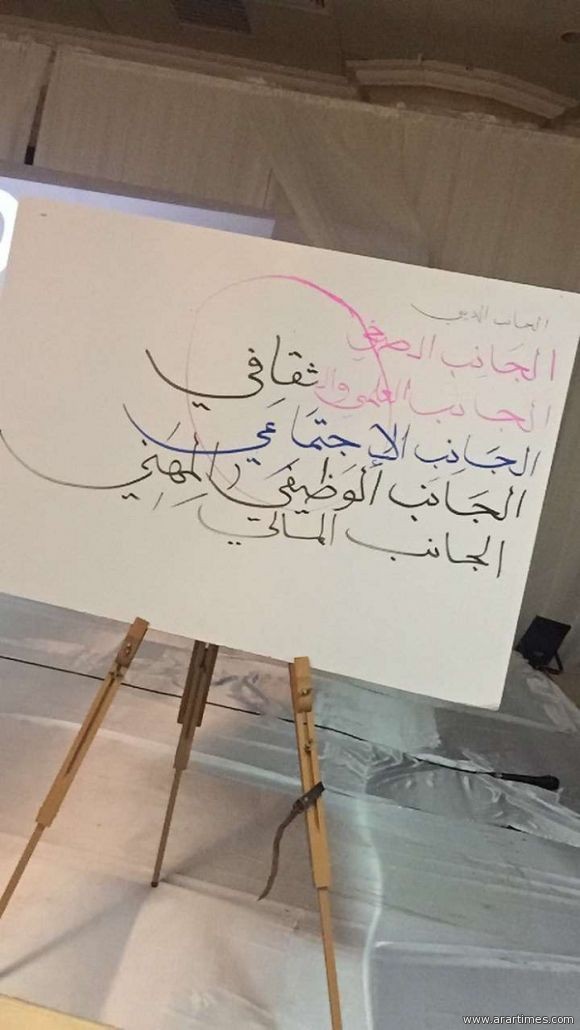 الجانب الديني
الجانب الصحي
الجانب العلمي والثقافي
الجَانِب الإجتمَاعَي
الجَانَب الوَظِيفَي المِهَنِي
الجانب المالي
www.arartimes.com